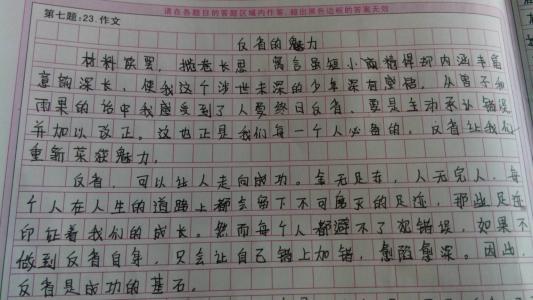 请在各题目的答题区域内作答,超出黑色边框的答案无效
第七题:23.作文
反省的魅力
材料欣罢,掩卷长思,寓言虽短小而精悍却内涵丰富,
意韵深长,使我这个涉世未深的少年深有感悟,从曾子和
雨果的话中我感受到了人要终日反省,更是主动承认错误
并加以改正。这也正是我们每一个人必备的,反省让我们
重新荣获魅力。
反省,可以让人走向成功。金无足赤,人无完人,每
个人在人生的道路上都会留下不可磨灭的足迹,那些足迹
印证着我们的成长。然而每个人都避不了犯错误,如果不
做到反省自身,只会让自己错上加错,愈陷愈深。因此,
反省是成功的基石。